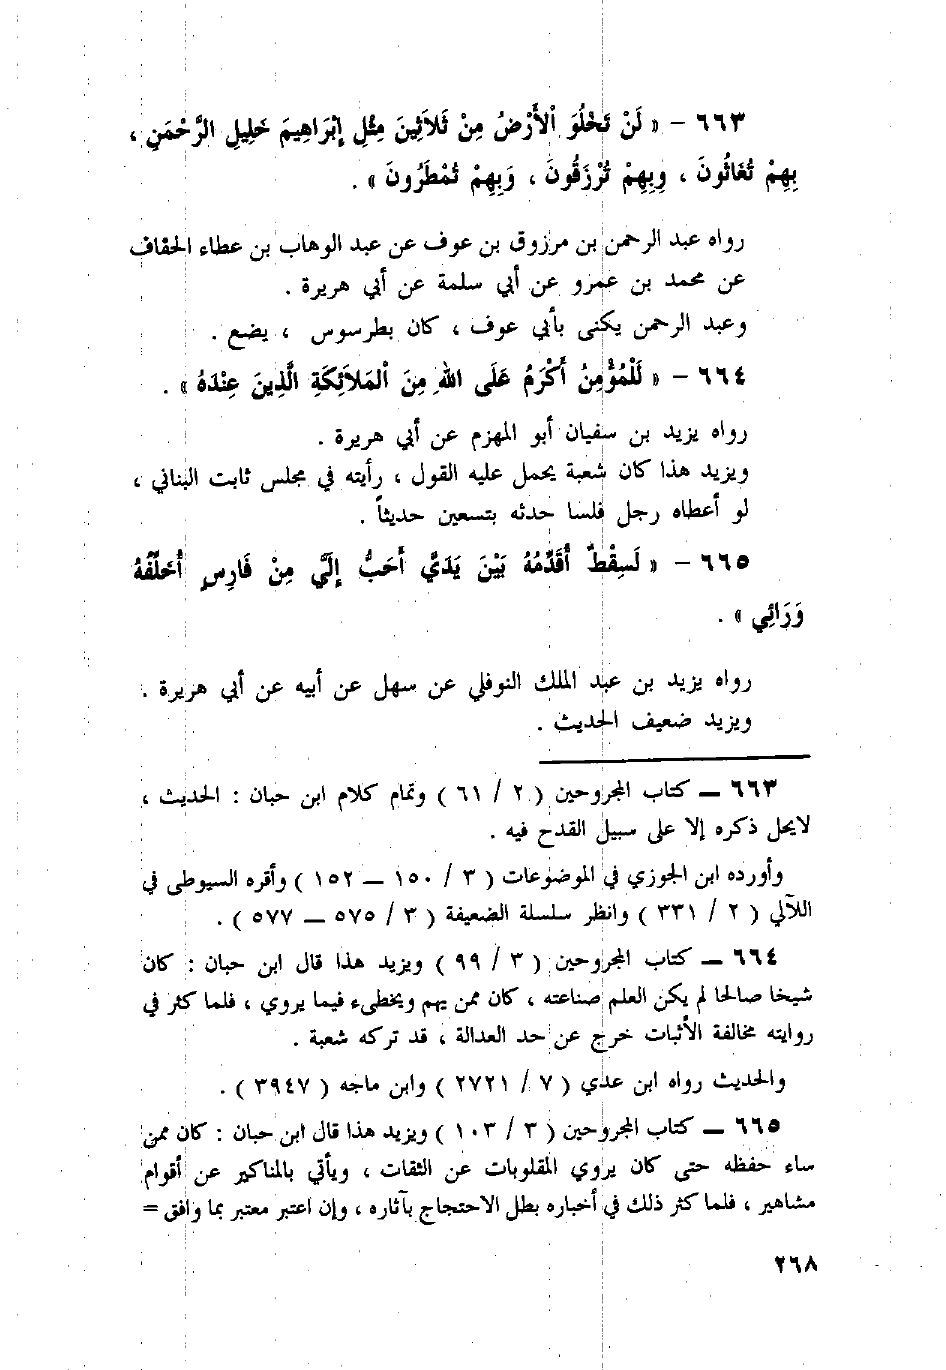 ٦٦٣ – « لَنْ تَخْلُوَ اْلأَرْضُ مِنْ ثَلاَثِينَ مِثْلِ إِبْرَاهِيمَ خَلِيلِ الرَّحْمَنِ ،
بِهِمْ تُغَاثُونَ ، وَبِهِمْ تُرْزَقُونَ ، وَبِهِمْ تُمْطَرُونَ » .
رواه عبد الرحمن بن مرزوق بن عوف عن عبد الوهاب بن عطاء الحقاف
عن محمد بن عمرو عن أبي سلمة عن أبي هريرة .
وعبد الرحمن يكنى بأبي عوف ، كان بطرسوس ، يضع .
٦٦٤ – « لَلْمُؤْمِنُ أَكْرَمُ عَلَى اللهِ مِنَ اْلمَلاَئِكَةِ الَّذِينَ عِنْدَهُ » .
رواه يزيد بن سفيان أبو المهزم عن أبي هريرة .
ويزيد هذا كان شعبة يحمل عليه القول ، رأيته في مجلس ثابت البناني ،
لو أعطاه رجل فلسا حدثه بتسعين حديثاً .
٦٦٥ – « لَسِقْطٌ أُقَدِّمُهُ بَيْنَ يَدَيَّ أَحَبُّ إِلَيَّ مِنْ فَارِسٍ أُخَلِّفُهُ
وَرَائِي » .
رواه يزيد بن عبد الملك النوفلي عن سهل عن أبيه عن أبي هريرة .
ويزيد ضعيف الحديث .
٦٦٣ — كتاب المجروحين ( ٢ / ٦١ ) وتمام كلام ابن حبان : الحديث ،
لايحل ذكره إلا على سبيل القدح فيه .
وأورده ابن الجوزي في الموضوعات ( ٣ / ١٥٠ — ١٥٢ ) وأقره السيوطى في
اللآلي ( ٢ / ٣٣١ ) وانظر سلسلة الضعيفة ( ٣ / ٥٧٥ — ٥٧٧ ) .
٦٦٤ — كتاب المجروحين ( ٣ / ٩٩ ) ويزيد هذا قال ابن حبان : كان
شيخا صالحا لم يكن العلم صناعته ، كان ممن يهم ويخطىء فيما يروي ، فلما كثر في
روايته مخالفة الأثبات خرج عن حد العدالة ، قد تركه شعبة .
والحديث رواه ابن عدي ( ٧ / ٢٧٢١ ) وابن ماجه ( ٣٩٤٧ ) .
٦٦٥ — كتاب المجروحين ( ٣ / ١٠٣ ) ويزيد هذا قال ابن حبان : كان ممن
ساء حفظه حتى كان يروي المقلوبات عن الثقات ، ويأتي بالمناكير عن أقوام
مشاهير ، فلما كثر ذلك في أخباره بطل الاحتجاج بآثاره ، وإن اعتبر معتبر بما وافق =
٢٦٨